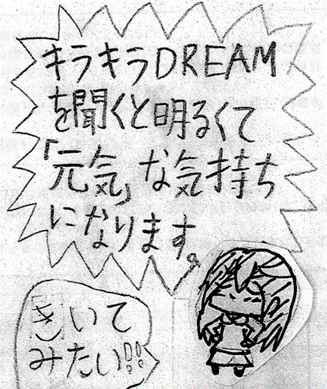 キラキラDREAM
を聞くと明るくて
「元気」な気持ち
になります。
きいて
みたい!!